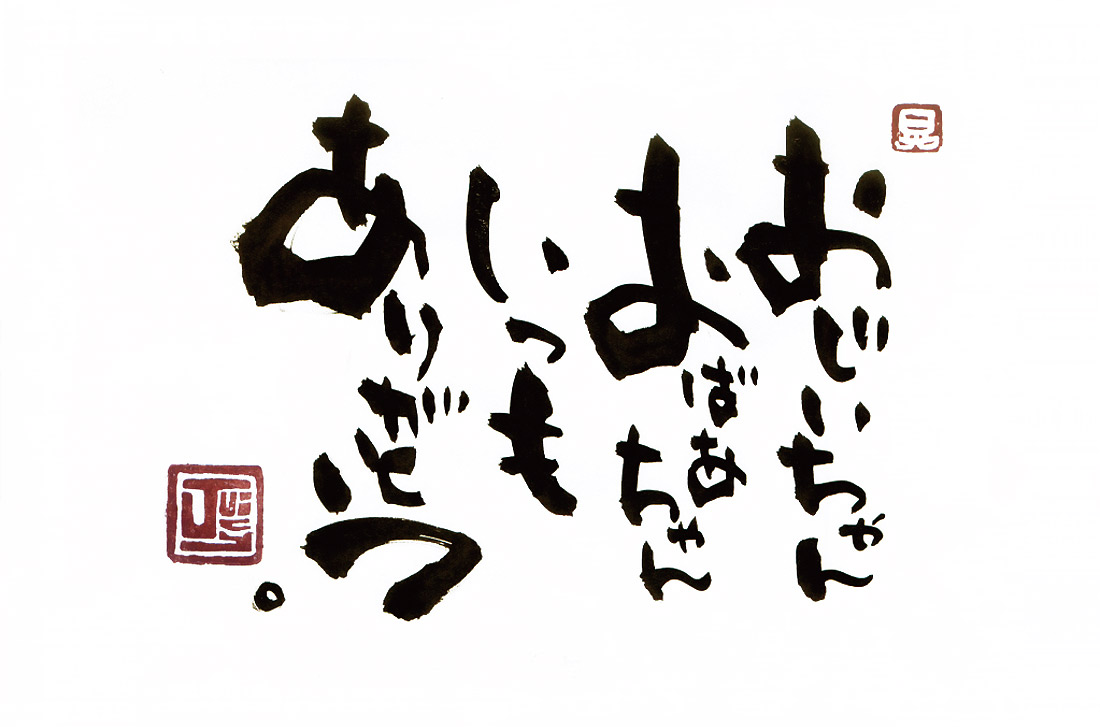 おじいちゃん
おばあちゃん
いつも
ありがとう。